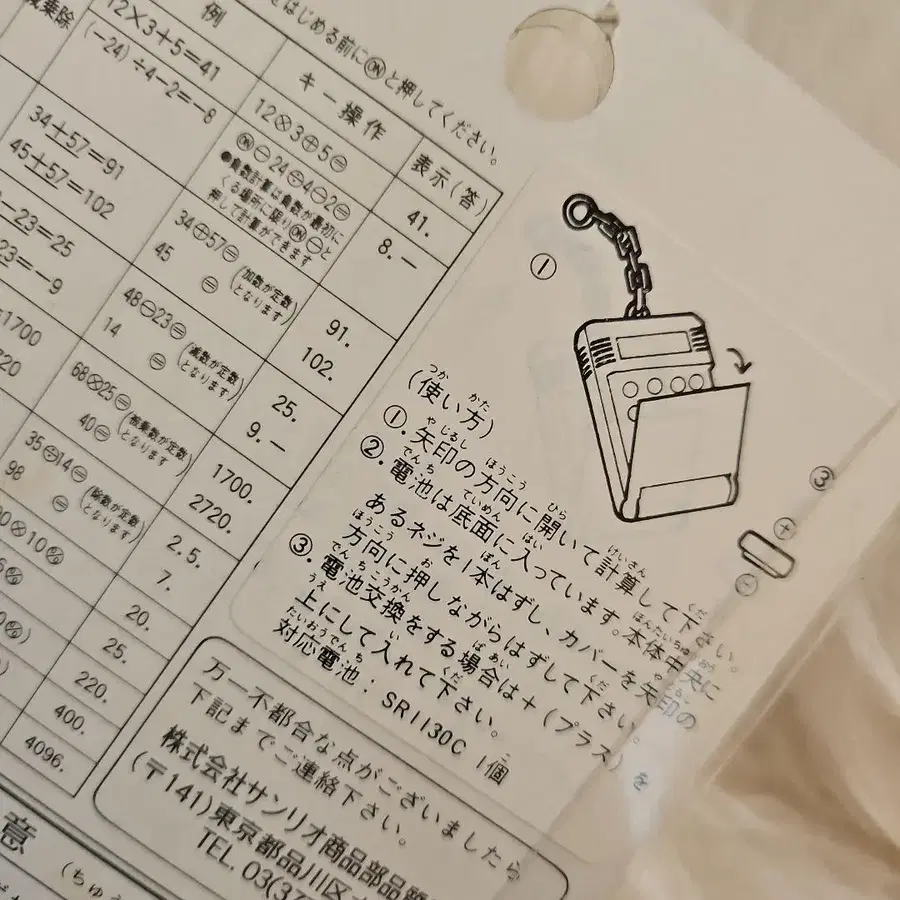 をはじめる前にONと押してください。
減乗除
例
キー操作
表示(答)
12×3+5=41
12⊗3⊕5⊜
41.
(−24)÷4−2=−8
ON⊖24⊕4⊖2⊜
8.−
●負数計算は負数が最初に
くる場所に限りON⊖と
押して計算ができます
34+57=91
34⊕57⊜
(加数が定数となります)
91.
45+57=102
45 ⊜
102.
−23=25
48⊖23⊜
(減数が定数となります)
25.
23=−9
14 ⊜
9.−
1700
68⊗25⊜
(被乗数が定数となります)
1700.
720
40⊜
2720.
35⊕14⊜
(除数が定数となります)
2.5.
98 ⊜
7.
20.
25.
220.
400.
4096.
①
③
⊕
⊖
(使い方)
①.矢印の方向に開いて計算して下さい。
②.電池は底面に入っています。本体中央に
あるネジを1本はずし、カバーを矢印の
方向に押しながらはずして下さい。
③.電池交換をする場合は+(プラス)を
上にして入れて下さい。
対応電池:SR1130C 1個
万一不都合な点がございましたら
下記までご連絡下さい。
株式会社サンリオ商品部品質
(〒141)東京都品川区
TEL. 03(37
意
(ちゅう